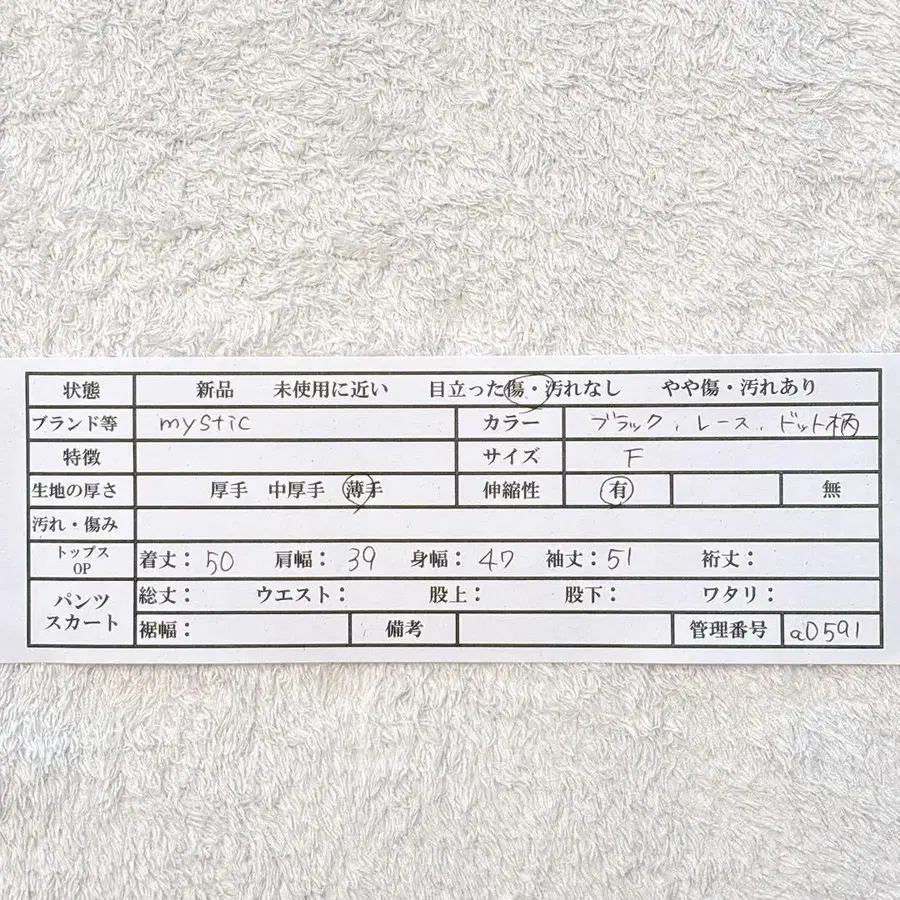 状態 新品 未使用に近い 目立った傷・汚れなし やや傷・汚れあり
ブランド等 mystic カラー ブラック、レース、ドット柄
特徴 サイズ F
生地の厚さ 厚手 中厚手 薄手 伸縮性 有 無
汚れ・傷み
トップス OP 着丈：50 肩幅：39 身幅：47 袖丈：51 裄丈：
パンツ スカート 総丈： ウエスト： 股上： 股下： ワタリ：
裾幅： 備考 管理番号 a0591